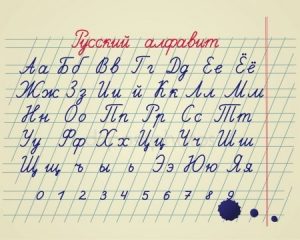 Русский алфавит
Аа Бб Вв Гг Дд Ее Ёё
Жж Зз Ии й Кк Лл Мм
Нн Оо Пп Рр Сс Тт
Уу Фф Хх Цц Чч Шш
Щщ ъ ы ь Ээ Юю Яя
0 1 2 3 4 5 6 7 8 9